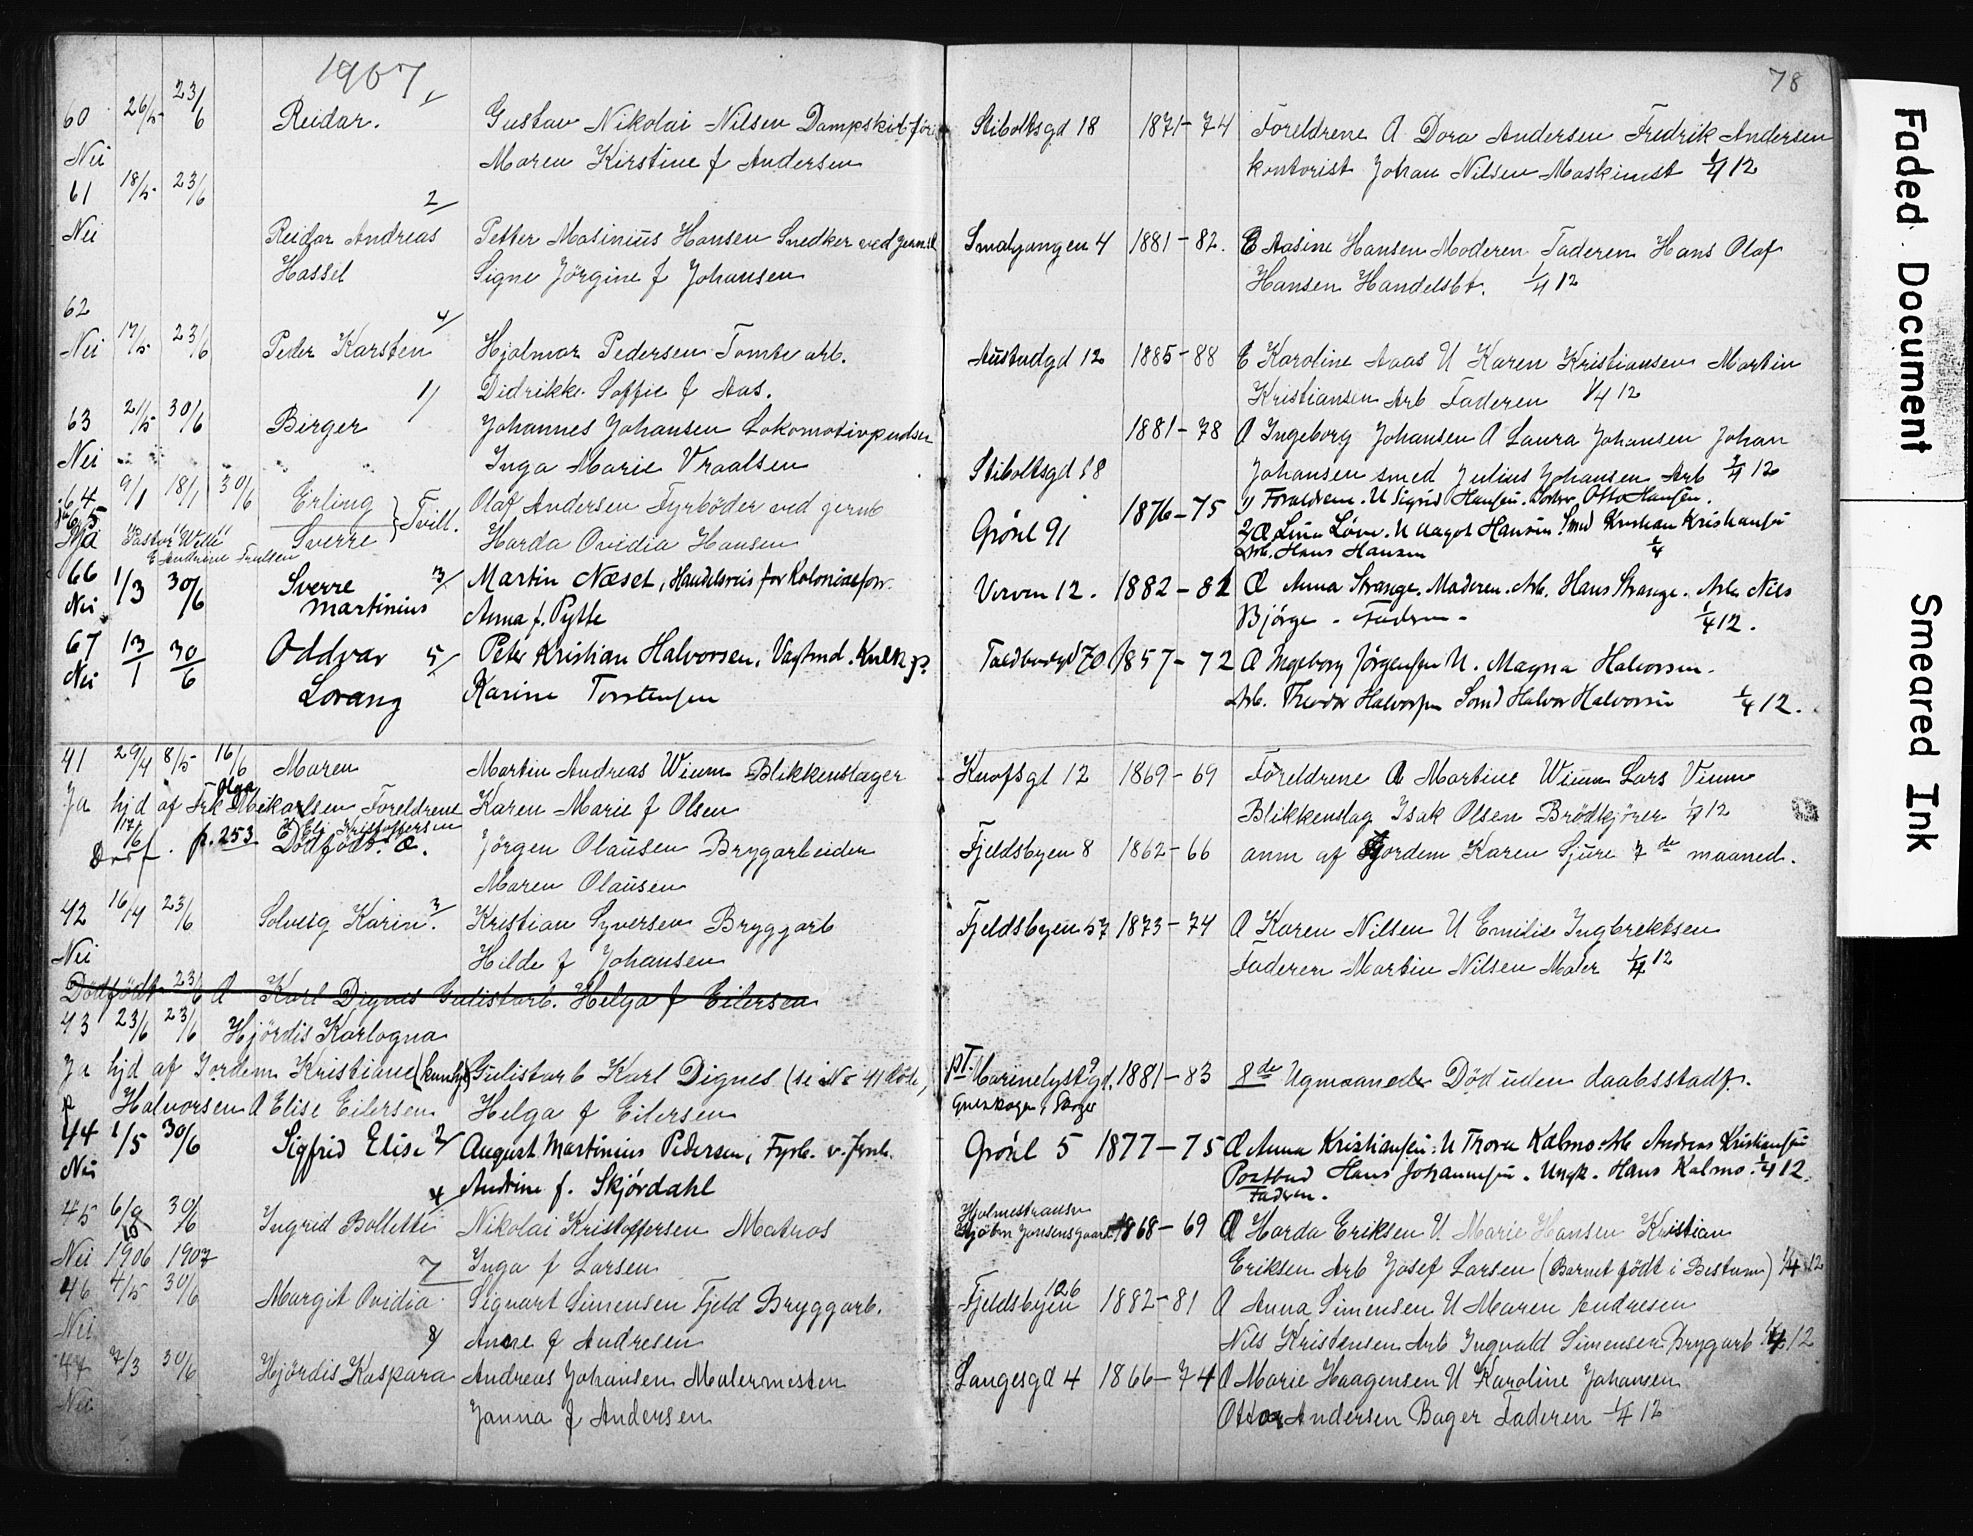 1907
78
60 26/5 23/6 Reidar. 1/ Gustav Nikolai Nilsen Dampskibsför Stiboltsgd 18 1871-74 Foreldrene A Dora Andersen Fredrik Andersen
Nei Maren Kirstine f Andersen kontorist Johan Nilsen Maskinist 1/4 12
61 18/5 23/6
Nei Reidar Andreas 2/ Petter Masinius Hansen Snedker ved jernb Smalgangen 4 1881-82. E Aasine Hansen Moderen Faderen Hans Olaf
Hassel Signe Jörgine f Johansen Hansen Handelsbt. 1/4 12
62
Nei 17/5 23/6 Peder Karsten 4/ Hjalmar Pedersen Tomtearb. Austadgd 12 1885-88 E Karoline Aaas U Karen Kristiansen Martin
Didrikke Soffie f Aas. Kristiansen Arb Faderen 1/4 12
63 21/5 30/6 Birger 1/ Johannes Johansen Lokomotivpudser 1881-78 A Ingeborg Johansen A Laura Johansen Johan
Nei Inga Marie Vraalsen Stiboltsgd 18 Johansen smed Julius Johansen Arb 1/4 12
64 9/1 18/1 30/6 Erling } Tvill. Olaf Andersen Fyrböder ved jernb Grönl 91 1876-75 1) Forældrene. U Sigrid Hansen. Otto Hansen.
65 Sverre Harda Ovidia Hansen 2) Æ Lina Löve. U Aagot Hansen. Smed Kristian Kristiansen
Ja Pastor Wille Arb. Hans Hansen 1/4
E Andrine Trulsen
66 1/3 30/6 Sverre 3/ Martin Næset, Handelsreis for Kolonialforr. Verven 12. 1882-81 Æ Anna Strange. Moderen. Arb. Hans Strange. Arb. Nils
Nei Martinius Anna f. Pytte Bjørge - Faderen - 1/4 12.
67 13/1 30/6 Oddvar 5/ Peter Kristian Halvorsen, Vagtmd. Toldbodgd 70 1857-72 A Ingeborg Jørgensen U. Magna Halvorsen.
Nei Lorang Karine Torstensen Arb. Theodor Halvorsen Smd Halvor Halvorsen 1/4 12.
41 29/4 8/5 16/6 Maren Martin Andreas Wium Blikkenslager Knofsgt 12 1869-69 Foreldrene A Martine Wium Lars Vium
Olga
Ja hjd af Frk Mikarlsen Foreldrene Karen Marie f Olsen Blikkenslag Isak Olsen Brödkjörer 1/4 12
E Eli Kristoffersen
17/6 p. 253 Dödfödt. Æ. Jörgen Olausen Brygarbeider Fjeldsbyen 8 1862-66 anm af Jordem Karen Sjure 7de maaned.
Maren Olausen
42 16/4 23/6 Solveig Karin. 3/ Kristian Syversen Bryggarb Fjeldsbyen 57 1873-74 A Karen Nilsen U Emilie Ingbrektsen
Nei Hilde f Johansen Faderen Martin Nilsen Maler 1/4 12
Dödfödt 23/6 A Karl Dignes Gulistarb. Helga f Eilersen
43 23/6 23/6 Hjördis Karlogna
Ja hjd af Jordem Kristiane Gulistarb Karl Dignes (se No 41 döde) pT. Marienelystgd. 1881-83 8de Ugmaaneder Död uden daabsstadf.
Halvorsen A Elise Eilersen Helga f Eilersen Gulskogen, Skoger
44 1/5 30/6 Sigfrid Elise 2/ August Martinius Pedersen, Fyrb. v. Jernb. Grönl 5 1877-75 Æ Anna Kristiansen. U Thora Kalmo. Arb Andreas Kristiansen
Nei Andrine f. Skjördahl Postbud Hans Johannesen. Ungk. Hans Kalmo. 1/4 12.
Faderen.
45 6/9 30/6 Ingrid Bollette 4/ Nikolai Kristoffersen Matros Holmestransv Jensensgaard 1868-69 A Harda Eriksen U Marie Hansen Kristian
Nei 1906 1907 Inga f Larsen Eriksen Arb Josef Larsen (Barnet födt i Bestum) 1/4 12
46 4/5 30/6 Margit Ovidia 7/ Sigvart Simensen Fjeld Bryggarb. Fjeldsbyen 126 1882-81 A Anna Simensen U Maren Andresen
Nei Anne f Andresen Nils Kristensen Arb Ingvald Simensen Brygarb 1/4 12
47 7/3 30/6 Hjördis Kaspara 8/ Andreas Johansen Malermester Langesgd 4 1866-74 A Marie Haagensen U Karoline Johansen
Nei Janna f Andersen Ottar Andersen Bager Faderen 1/4 12
Faded Document
Smeared Ink